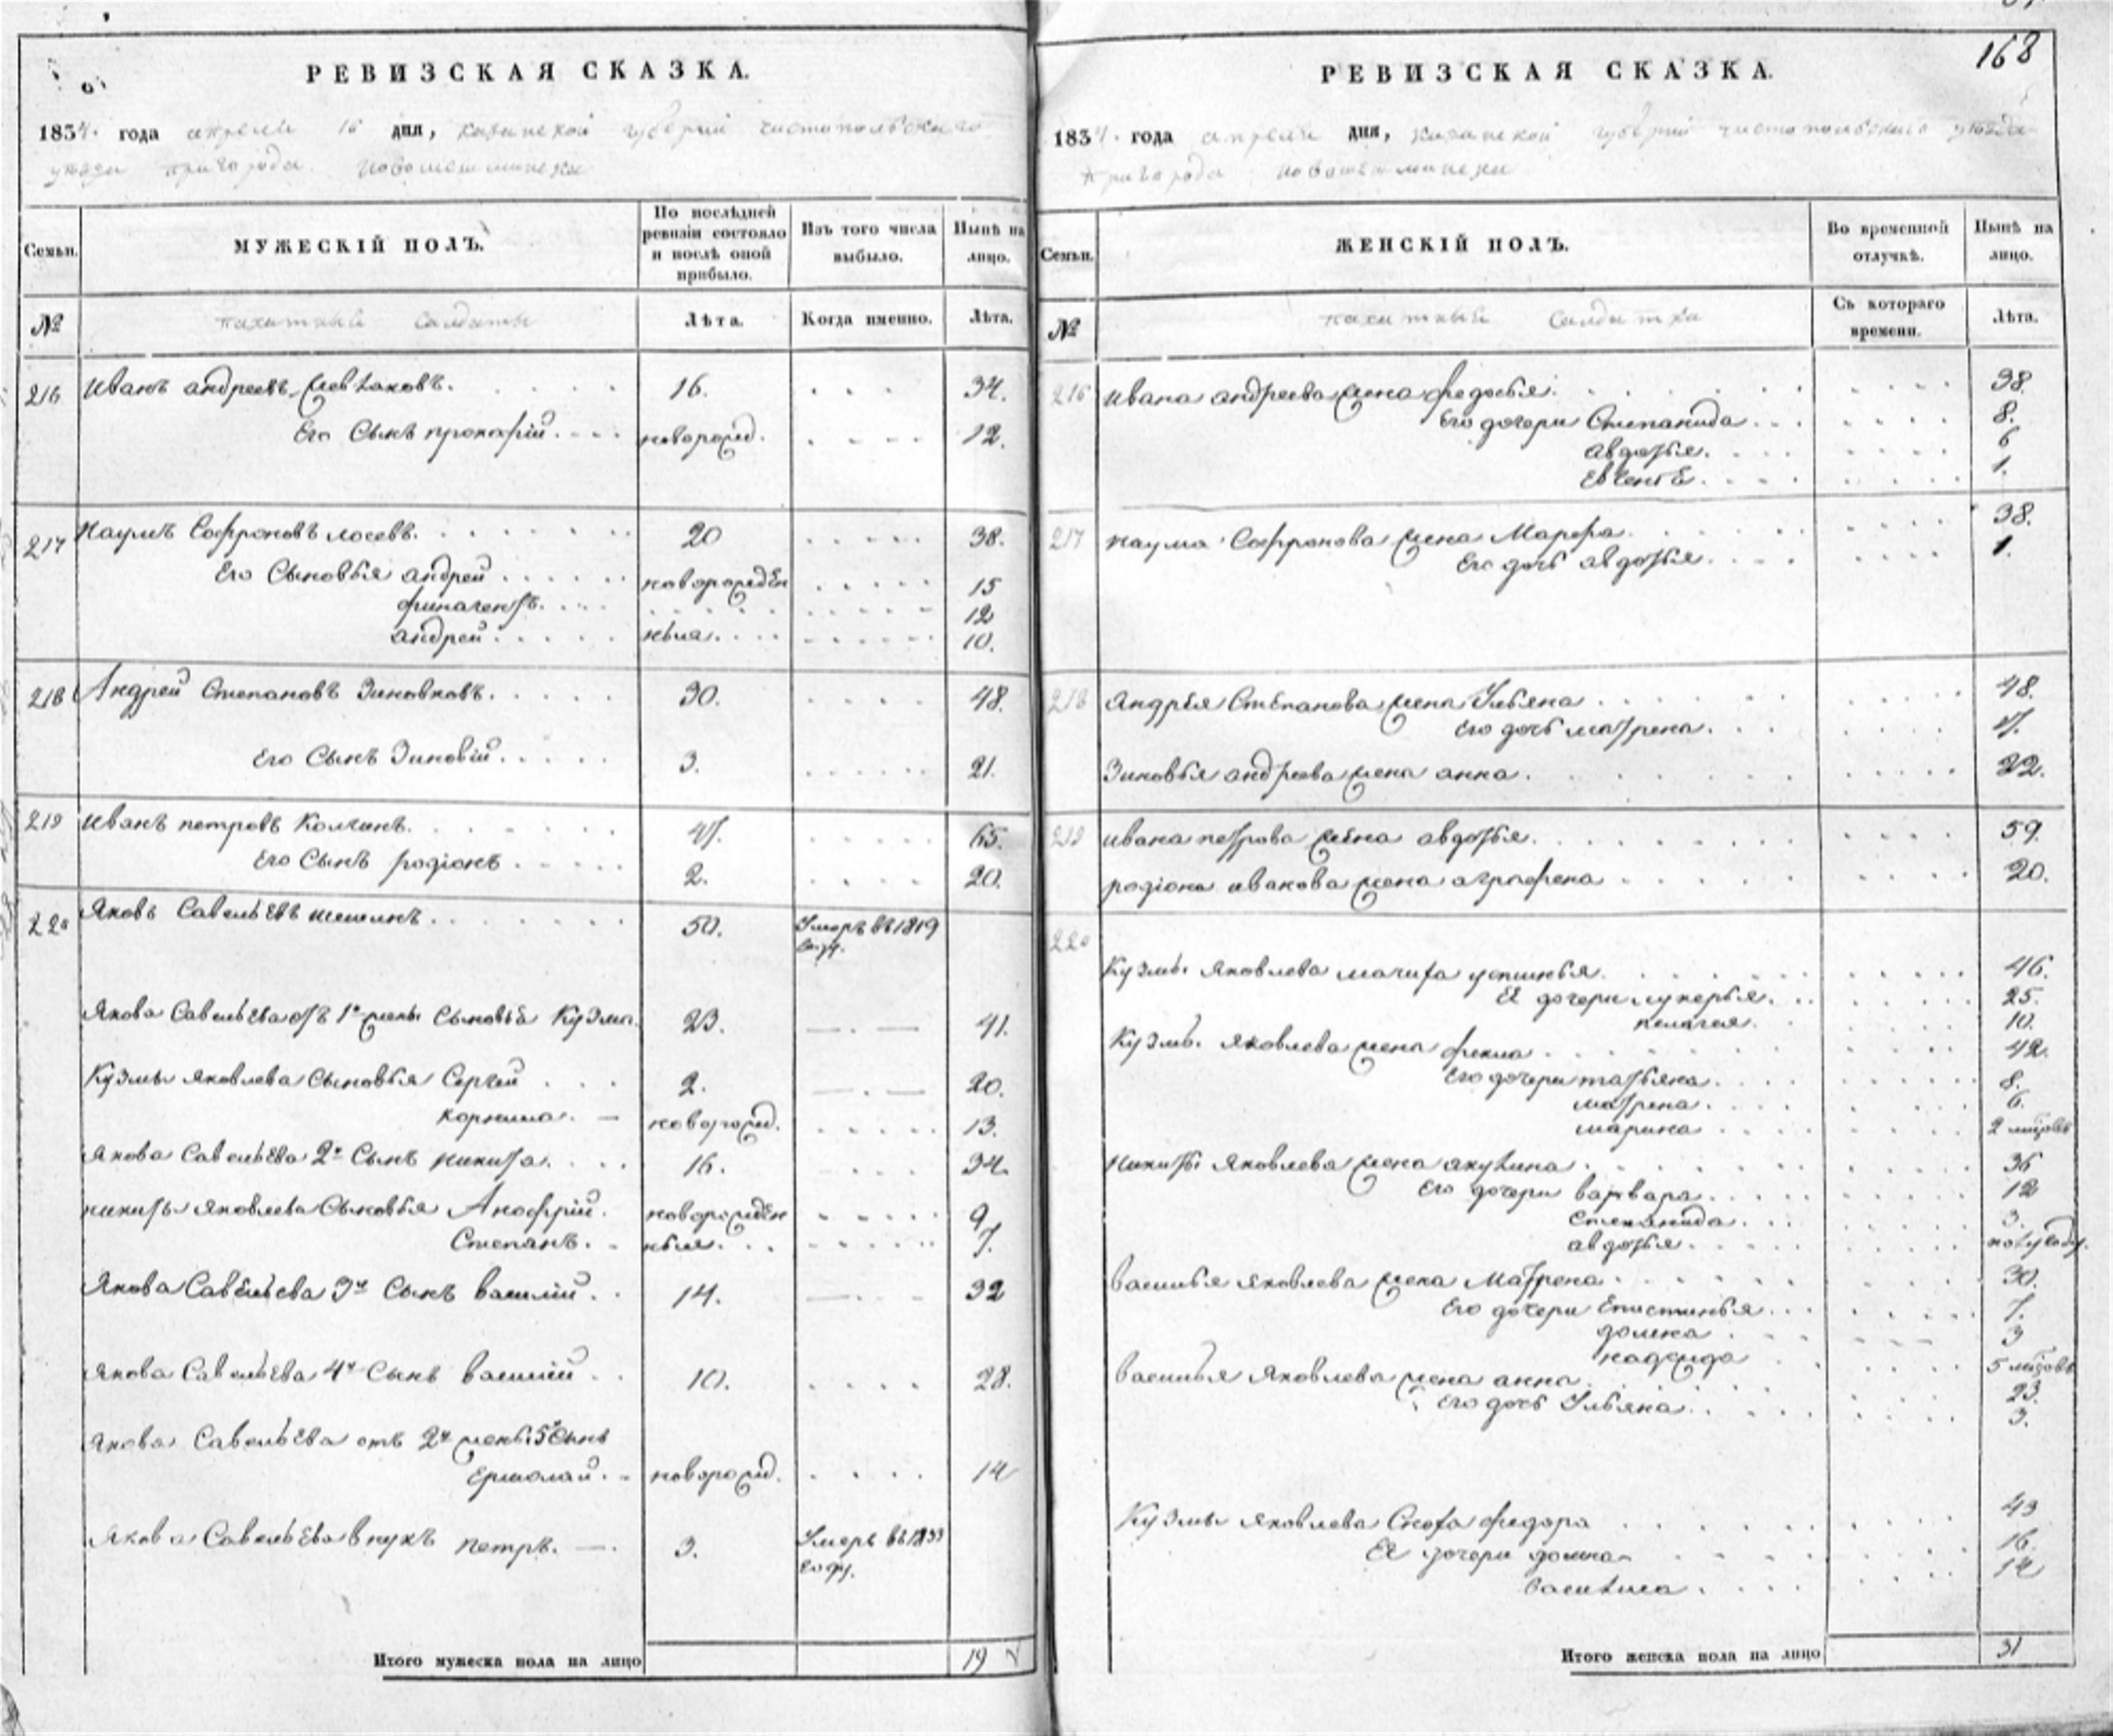 168
РЕВИЗСКАЯ СКАЗКА.
1834. года апреля 16 дня, казанской губернии чистопольскаго
уезда пригорода новошешминска
Семьи.
МУЖЕСКІЙ ПОЛЪ.
По послѣдней ревизіи состояло и послѣ оной прибыло.
Изъ того числа выбыло.
Нынѣ на лицо.
№
пахатный салдаты
Лѣта.
Когда именно.
Лѣта.
216 Иванъ андреевъ 16. 34.
Его Сынъ прокофій новорожд. 12.
217 Наумъ Софроновъ лосевъ. 20 38.
Его Сыновья андрей новорожден 15
12
андрей ныя 10.
218 Андрей Степановъ Зиновковъ. 30. 48.
Его Сынъ Зиновій 3. 21.
219 Иванъ петровъ Колчинъ. 47. 65.
Его Сынъ родіонъ 2. 20.
220 Яковъ Савельевъ шешинъ. 50. Умеръ въ 1819
году.
Якова Савельева отъ 1й жены Сыновья Кузма. 23. 41.
Кузмы яковлева Сыновья Сергей 2. 20.
Корнила. новорожд. 13.
Якова Савельева 2й Сынъ никита. 16. 34.
никиты яковлева Сыновья Анофрій. новорожден 9
Степанъ. ныя. 7.
Якова Савельева 3й Сынъ василій. 14. 32
Якова Савельева 4й Сынъ василій 10. 28.
Якова Савельева отъ 2й жены 5й Сынъ
Ермолай. новорожд. 14
Якова Савельева внукъ петръ. 3. Умеръ въ 1833
году.
Итого мужеска пола на лицо 19
РЕВИЗСКАЯ СКАЗКА.
1834. года апреля дня, казанской губерніи чистопольскаго уезда
пригорода новошешминска
Семьи.
ЖЕНСКІЙ ПОЛЪ.
Во временной отлучкѣ.
Нынѣ на лицо.
№
пахатный салдатка
Съ котораго времени.
Лѣта.
216 Ивана андреева жена федосья. 38.
Его дочери Степанида 8.
авдотья. 6
1.
217 наума Софронова жена Марфа 38.
Его дочь авдотья 1.
218 Андрея Степанова жена Ульяна 48.
Его дочь матрена. 17.
Зиновья андреева жена анна. 22.
219 Ивана петрова жена авдотья. 59.
родіона иванова жена аграфена 20.
220
Кузмы Яковлева мачиха устинья. 46.
Ея дочери лукерья. 25.
пелагея. 10.
Кузмы Яковлева жена фекла 42.
Его дочери татьяна. 8.
матрена 6.
марина 2
никиты Яковлева жена акулина 36
Его дочери варвара. 12
степанида. 3.
авдотья. полугоду.
василья яковлева жена Матрена 30.
Его дочери Епистинья 7.
домна 3
надежда 5
василья Яковлева жена анна 23.
Его дочь Ульяна. 3.
Кузмы Яковлева Сноха федора 43
Ея дочери домна 16.
василиса. 14
Итого женска пола на лицо 31